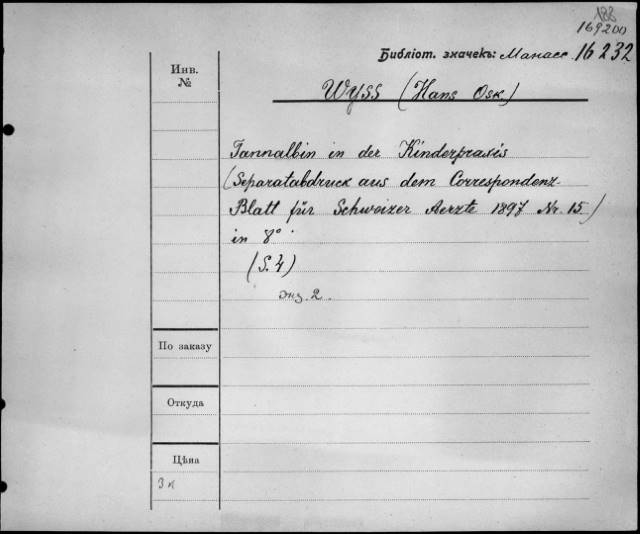 188
169200
Библіот. значекъ: Манасс. 16232
Инв.
№
Wyss (Hans Osk.)
Tannalbin in der Kinderpraxis
(Separatabdruck aus dem Correspondenz-
Blatt für Schweizer Aerzte 1897 Nr. 15)
in 8°
(S. 4)
экз. 2.
По заказу
Откуда
Цѣна
3 к